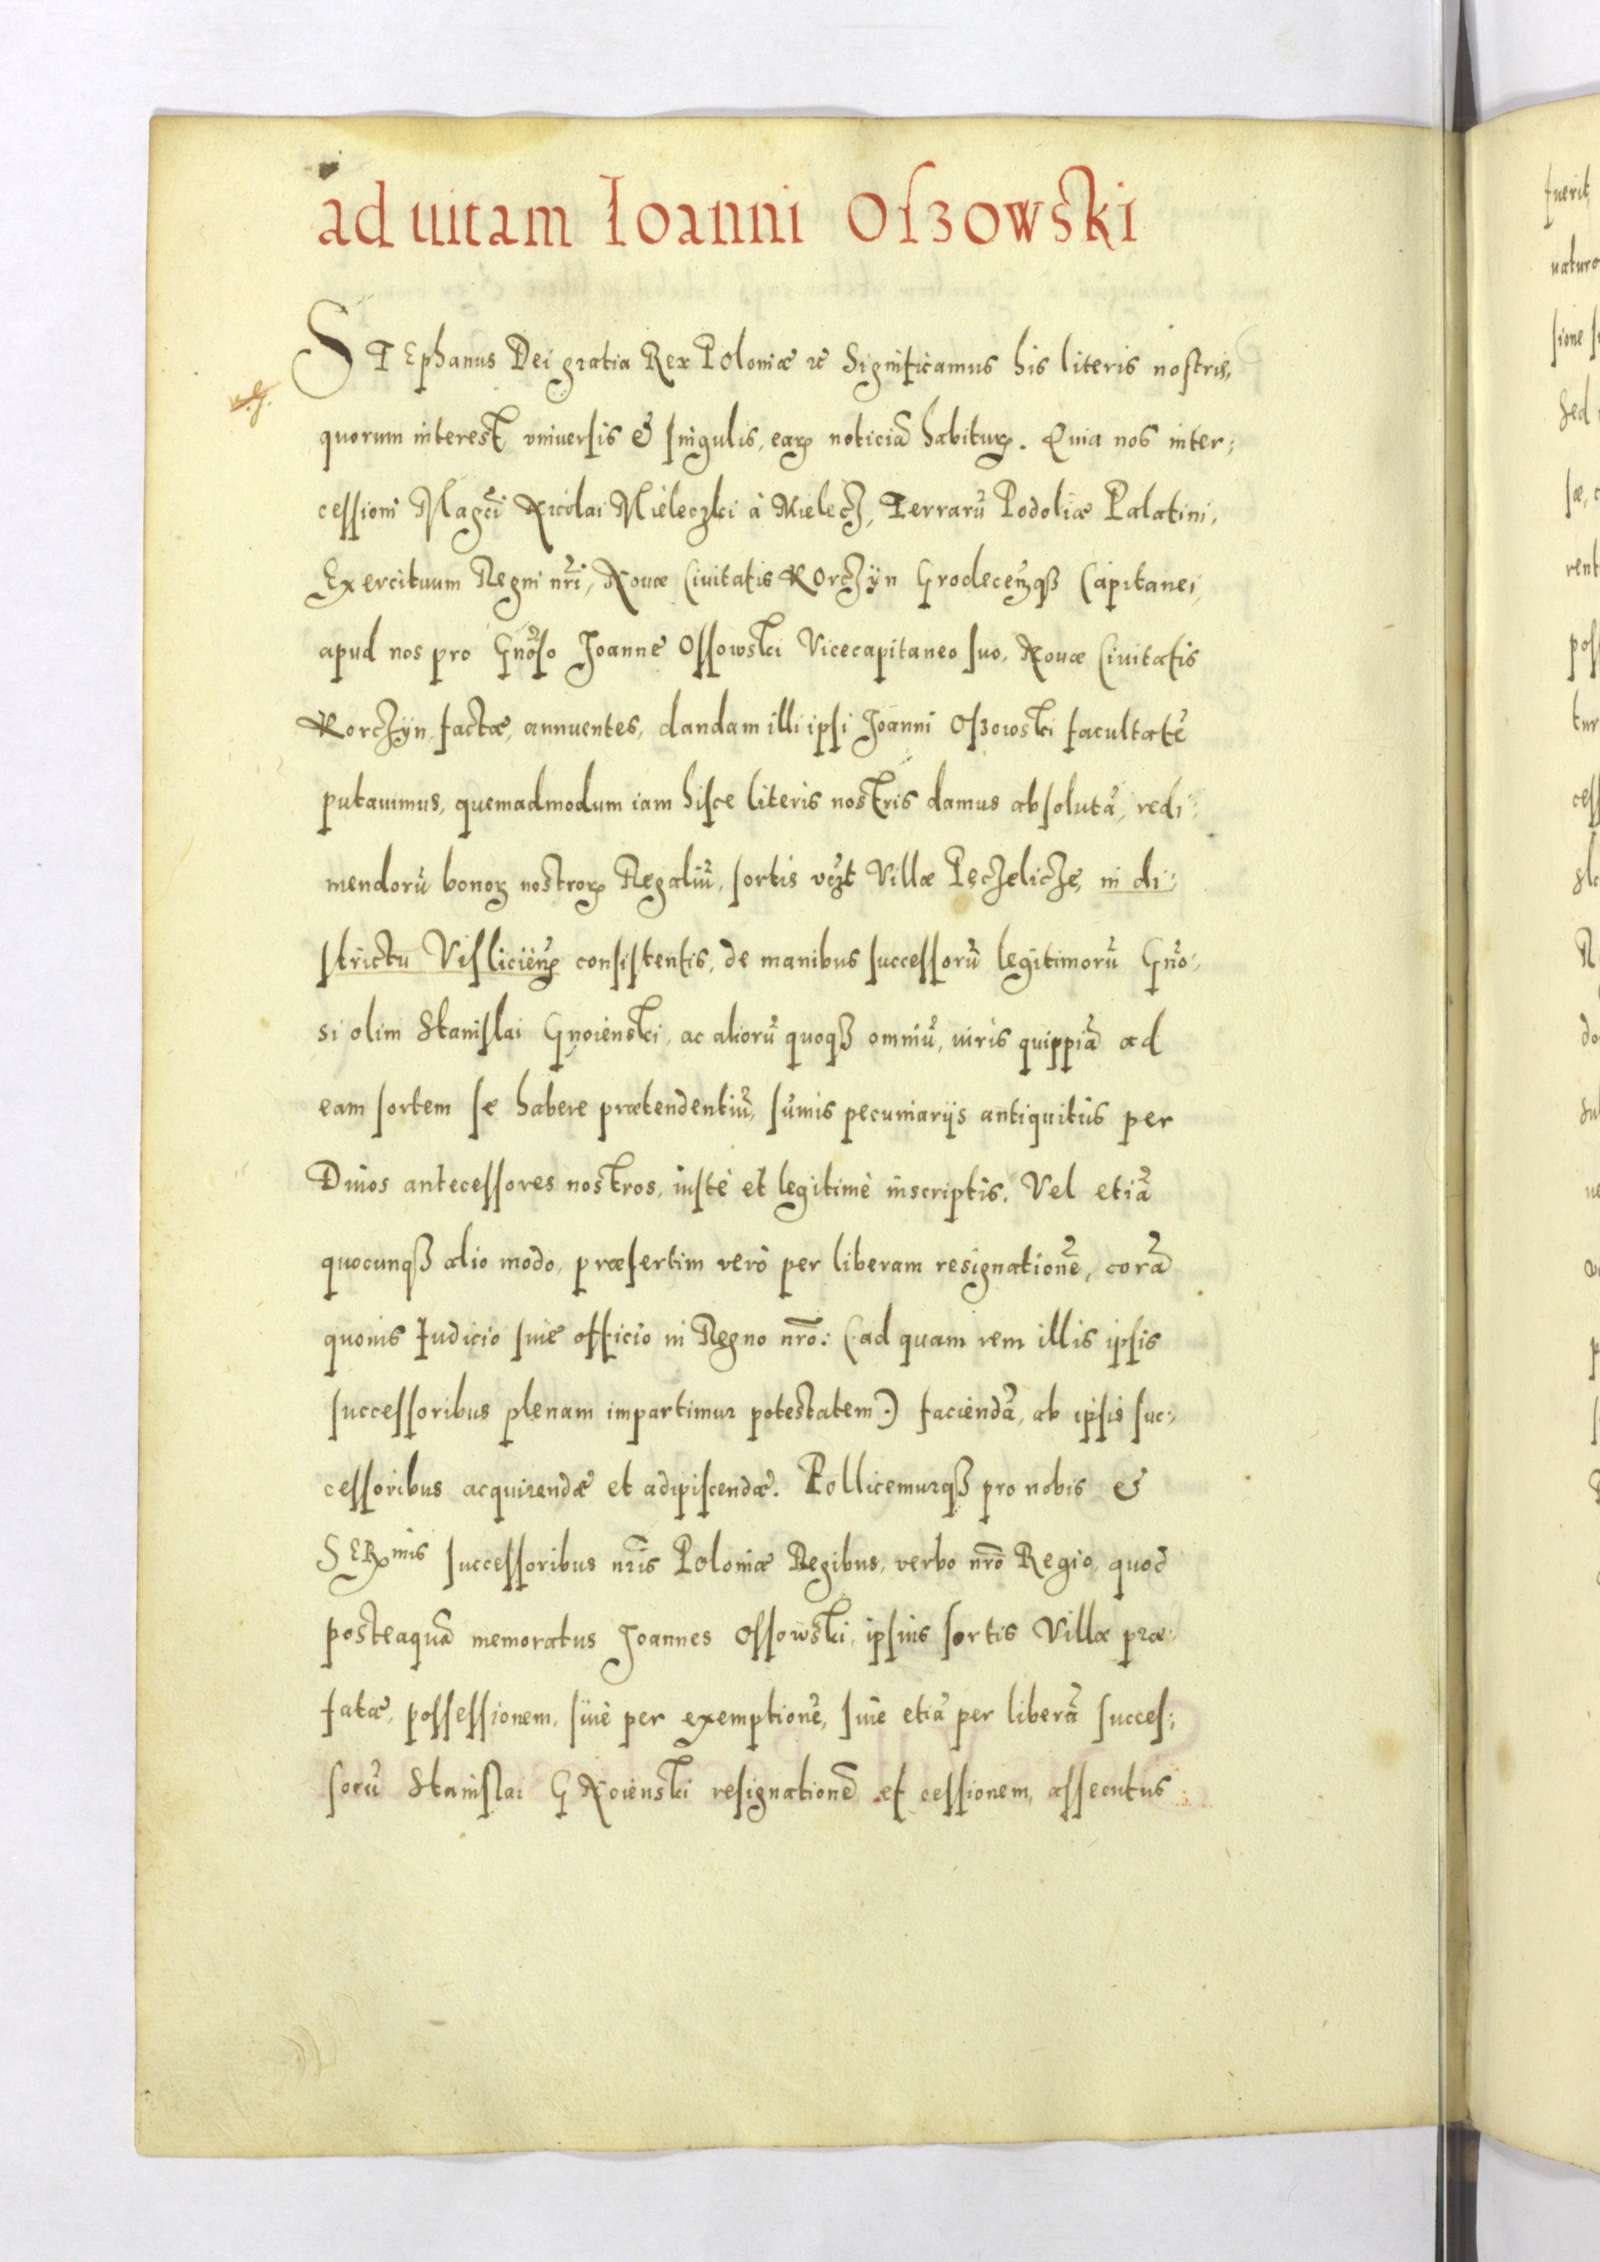 ad uitam Ioanni Osʒowski
STEphanus Dei gratia Rex Poloniæ ꝛc Significamus his literis nostris,
quorum interest vniuersis & singulis, eaꝝ noticiã habituꝝ. Quia nos inter:
cessioni Magci Nicolai Mieleczki à Mielecz, Terrarũ Podoliæ Palatini,
Exercituum Regni nri, Nouæ Ciuitatis Korczÿn Grodecenqꝫ Capitanei,
apud nos pro Gnoso Joanne Ossowski Vicecapitaneo suo, Nouæ Ciuitatis
Korczÿn, factæ, annuentes, dandam illi ipsi Joanni Osʒowski facultatẽ
putauimus, quemadmodum iam hisce literis nostris damus absolutã, redi:
mendorũ bonoꝝ nostroꝝ Regaliũ, sortis Villæ Pęczelicze, in di:
strictu Visliciens consistentis, de manibus successorũ legitimorũ Gno:
si olim Stanislai Gnoienski, ac aliorũ quoqꝫ omniũ, iuris quippiã ad
eam sortem se habere prætendentiũ, sũmis pecuniarijs antiquitùs per
Diuos antecessores nostros, iustè et legitimè inscriptis. Vel etiã
quocunqꝫ alio modo, præsertim verò per liberam resignationẽ, corã
quouis Iudicio siue officio in Regno nro: (ad quam rem illis ipsis
successoribus plenam impartimur potestatem.) faciendã, ab ipsis suc:
cessoribus acquirendæ et adipiscendæ. Pollicemurqꝫ pro nobis &
SERmis successoribus nris Poloniæ Regibus, verbo nro Regio, quod
posteaquã memoratus Joannes Ossowski, ipsius sortis Villæ præ:
fatæ, possessionem, siuè per exemptionẽ, siue etiã per liberã succes:
sorũ Stanislai GNoienski resignationẽ et cessionem, assecutus